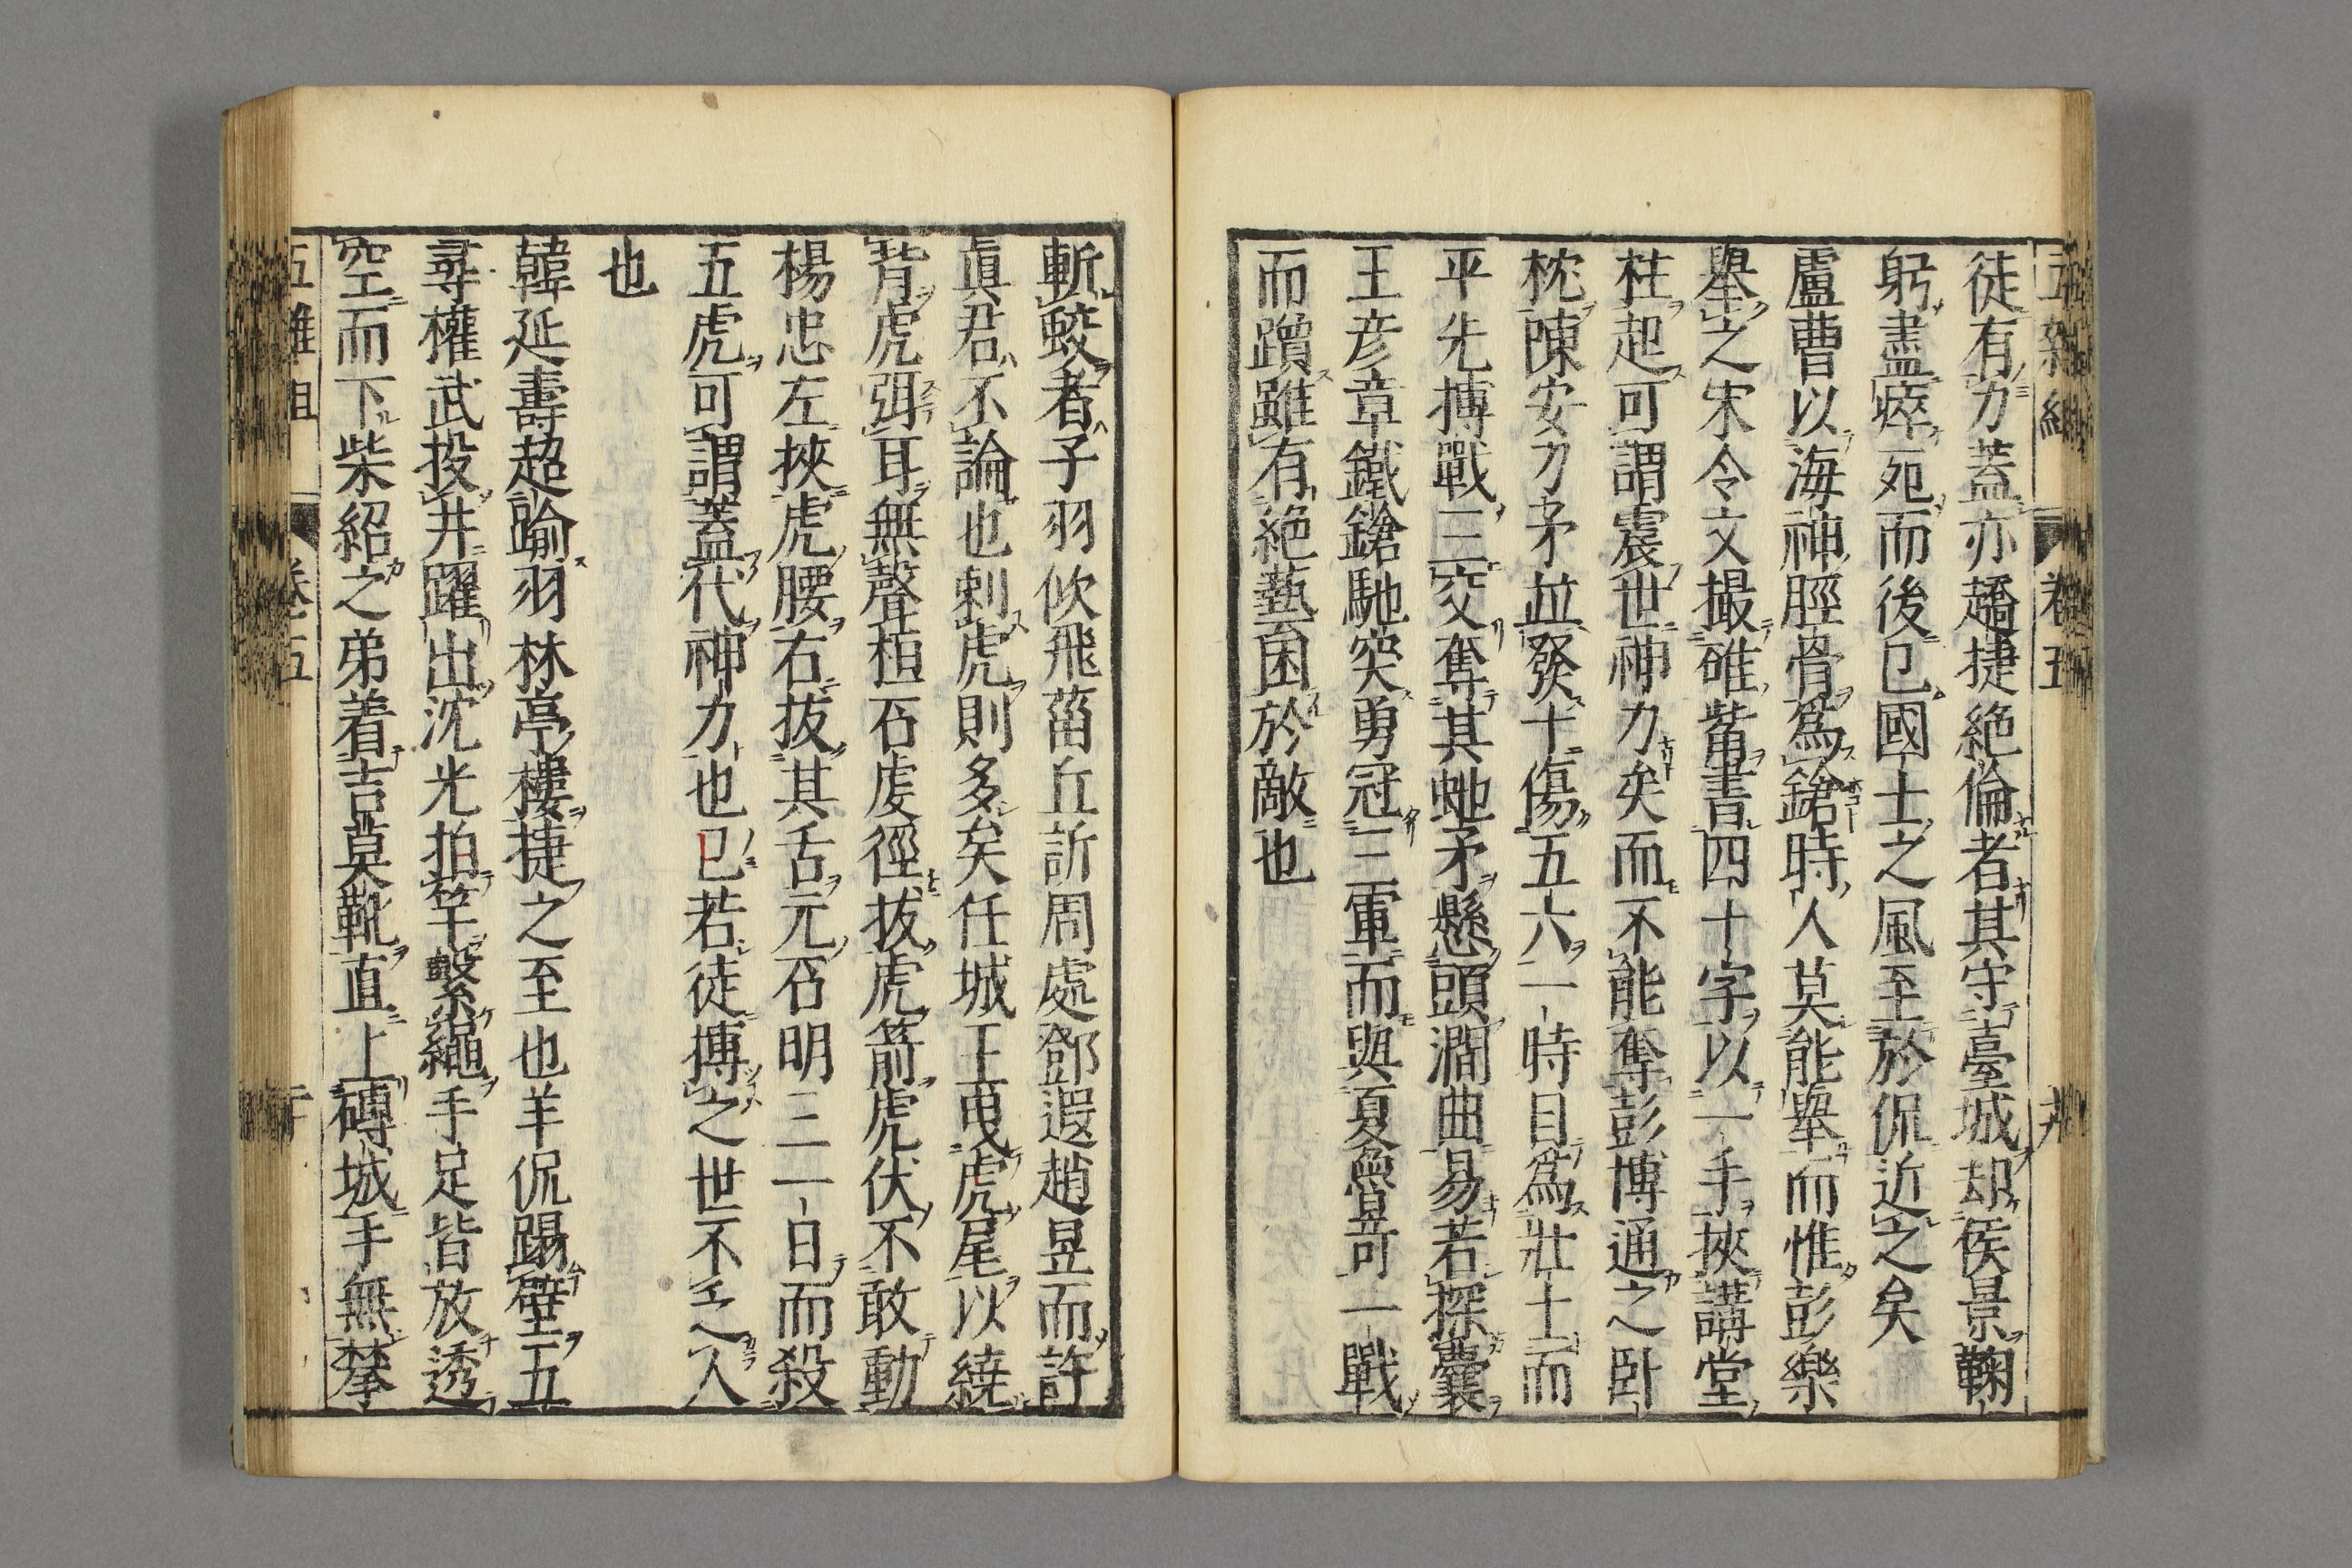 五雜組 卷五 廾
徒有力蓋亦趫捷絶倫者其守臺城却侯景鞠
躬盡瘁死而後已國士之風至於侃近之矣
盧曹以海神脛骨爲鎗時人莫能舉而惟彭樂
舉之宋令文撮碓觜書四十字以一手挾講堂
柱起可謂震世神力矣而不能奪彭博通之卧
枕陳安刀矛並發十傷五六一時目爲壯士而
平先搏戰三交奪其蛇矛懸頭澗曲易若探囊
王彦章鐵鎗馳突勇冠三軍而與夏魯奇一戰
而躓雖有絶藝困於敵也
斬蛟者子羽佽飛菑丘訢周處鄧遐趙昱而許
眞君不論也刺虎則多矣任城王曳虎尾以繞
背虎弭耳無聲桓石虔徑拔虎箭虎伏不敢動
楊忠左挾虎腰右拔其舌元石明三一日而殺
五虎可謂蓋代神力也已若徒搏之世不乏人
也
韓延壽超踰羽林亭樓捷之至也羊侃踢壁五
尋權武投井躍出沈光拍竿繫繩手足皆放透
空而下柴紹之弟着吉莫靴直上磚城手無攀
五雜組 卷五